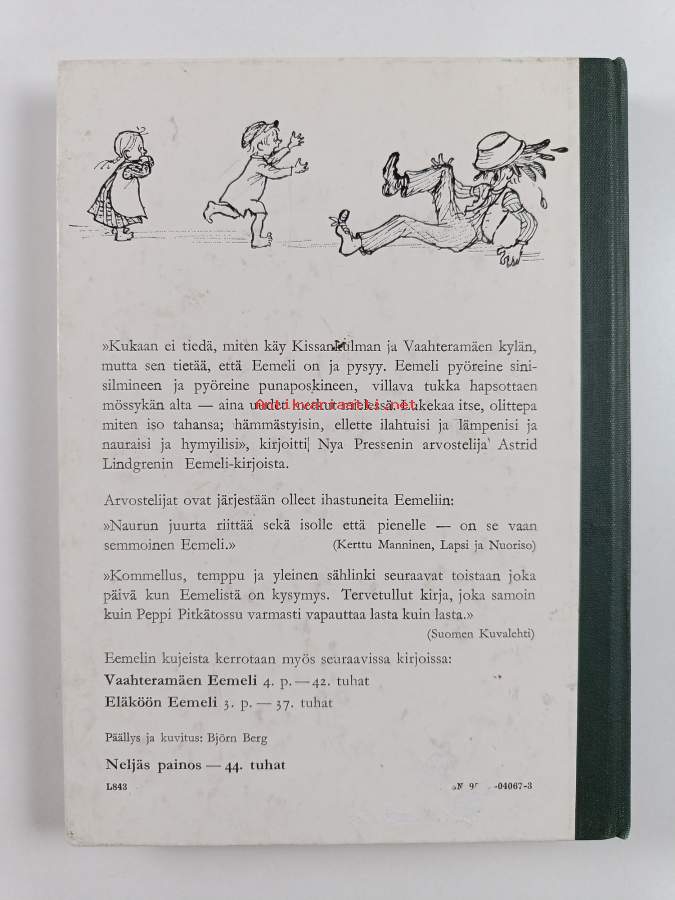 »Kukaan ei tiedä, miten käy Kissankulman ja Vaahteramäen kylän,
mutta sen tietää, että Eemeli on ja pysyy. Eemeli pyöreine sini-
silmineen ja pyöreine punaposkineen, villava tukka hapsottaen
mössykän alta — aina uudet metkut mielessä. Lukekaa itse, olittepa
antikvariaatti.net
miten iso tahansa; hämmästyisin, ellette ilahtuisi ja lämpenisi ja
nauraisi ja hymyilisi», kirjoitti Nya Pressenin arvostelija Astrid
Lindgrenin Eemeli-kirjoista.
Arvostelijat ovat järjestään olleet ihastuneita Eemeliin:
»Naurun juurta riittää sekä isolle että pienelle — on se vaan
semmoinen Eemeli.» (Kerttu Manninen, Lapsi ja Nuoriso)
»Kommellus, temppu ja yleinen sählinki seuraavat toistaan joka
päivä kun Eemelistä on kysymys. Tervetullut kirja, joka samoin
kuin Peppi Pitkätossu varmasti vapauttaa lasta kuin lasta.»
(Suomen Kuvalehti)
Eemelin kujeista kerrotaan myös seuraavissa kirjoissa:
Vaahteramäen Eemeli 4. p. — 42. tuhat
Eläköön Eemeli 3. p. — 37. tuhat
Päällys ja kuvitus: Björn Berg
Neljäs painos — 44. tuhat
L843 -04067-3